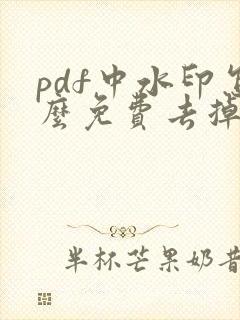 pdf中水印怎
么免费去掉
半杯芒果奶昔